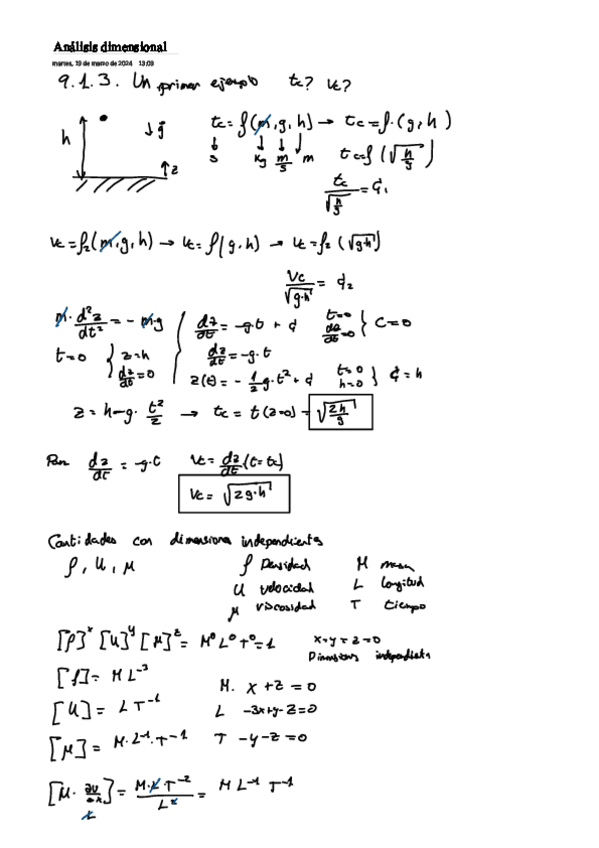 Análisis dimensional
martes, 19 de marzo de 2024 13:03
9.1.3. Un primer ejemplo tc? vc?
h g z
tc = f(m, g, h) → tc = f(g, h)
s kg m/s m tc = f(√(h/g))
tc/√(h/g) = C1
vc = f2(m, g, h) → vc = f(g, h) → vc = f2(√(g·h))
vc/√(g·h) = C2
m · d²z/dt² = - m·g
t=0 { z=h dz/dt=0
dz/dt = -g·t + C t=0 dz/dt=0 } C=0
dz/dt = -g·t
z(t) = - 1/2 g·t² + C t=0 h=0 } C=h
z = h-g· t²/2 → tc = t(z=0) = √(2h/g)
Para dz/dt = -g·t vc = dz/dt (t=tc)
vc = √(2g·h)
Cantidades con dimensiones independientes
ρ, U, μ
ρ Densidad M masa
U velocidad L longitud
μ viscosidad T tiempo
[ρ]^x [U]^y [μ]^z = M⁰ L⁰ T⁰ = 1 x=y=z=0
Dimensiones independientes
[ρ] = M L⁻³
M. x + z = 0
[U] = L T⁻¹
L -3x+y-z=0
[μ] = M·L⁻¹·T⁻¹ T -y-z=0
[μ · ∂u/∂x] = M·L T⁻² / L² = M L⁻¹ T⁻¹